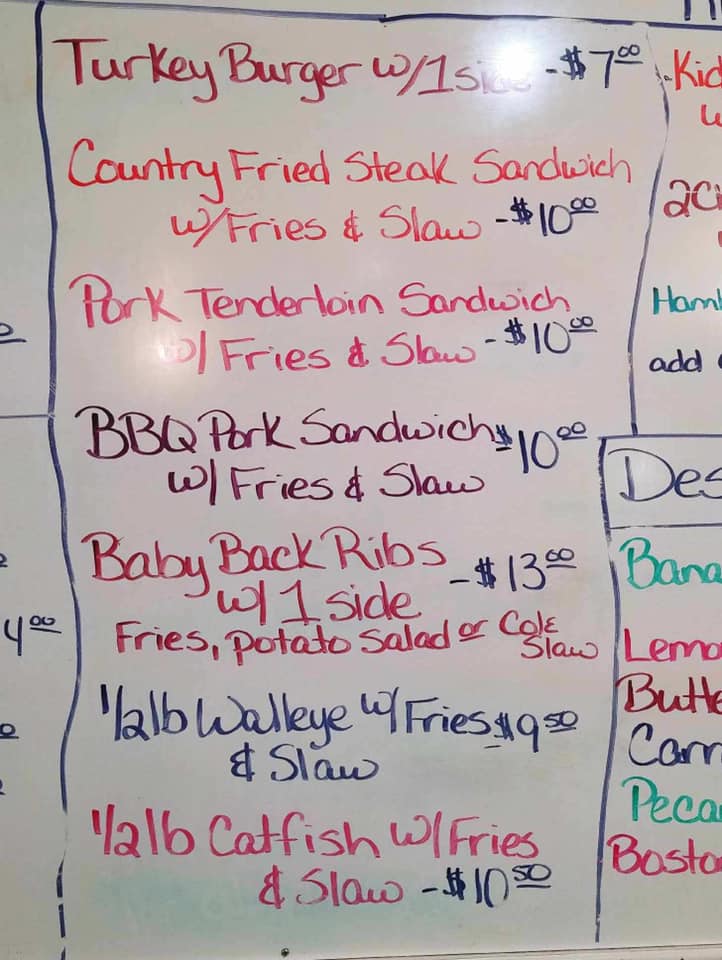 Turkey Burger w/1 side - $7.00
Country Fried Steak Sandwich
w/Fries & Slaw - $10.00
Pork Tenderloin Sandwich
w/ Fries & Slaw - $10.00
BBQ Pork Sandwich - $10.00
w/ Fries & Slaw
Baby Back Ribs - $13.00
w/ 1 side
Fries, potato salad or Cole
Slaw
1/2 lb Walleye w/ Fries - $9.50
& Slaw
1/2 lb Catfish w/ Fries
& Slaw - $10.50
4.00
Kid
w
2
Ham
add
Des
Bana
Lemo
Butte
Carr
Peca
Bosto